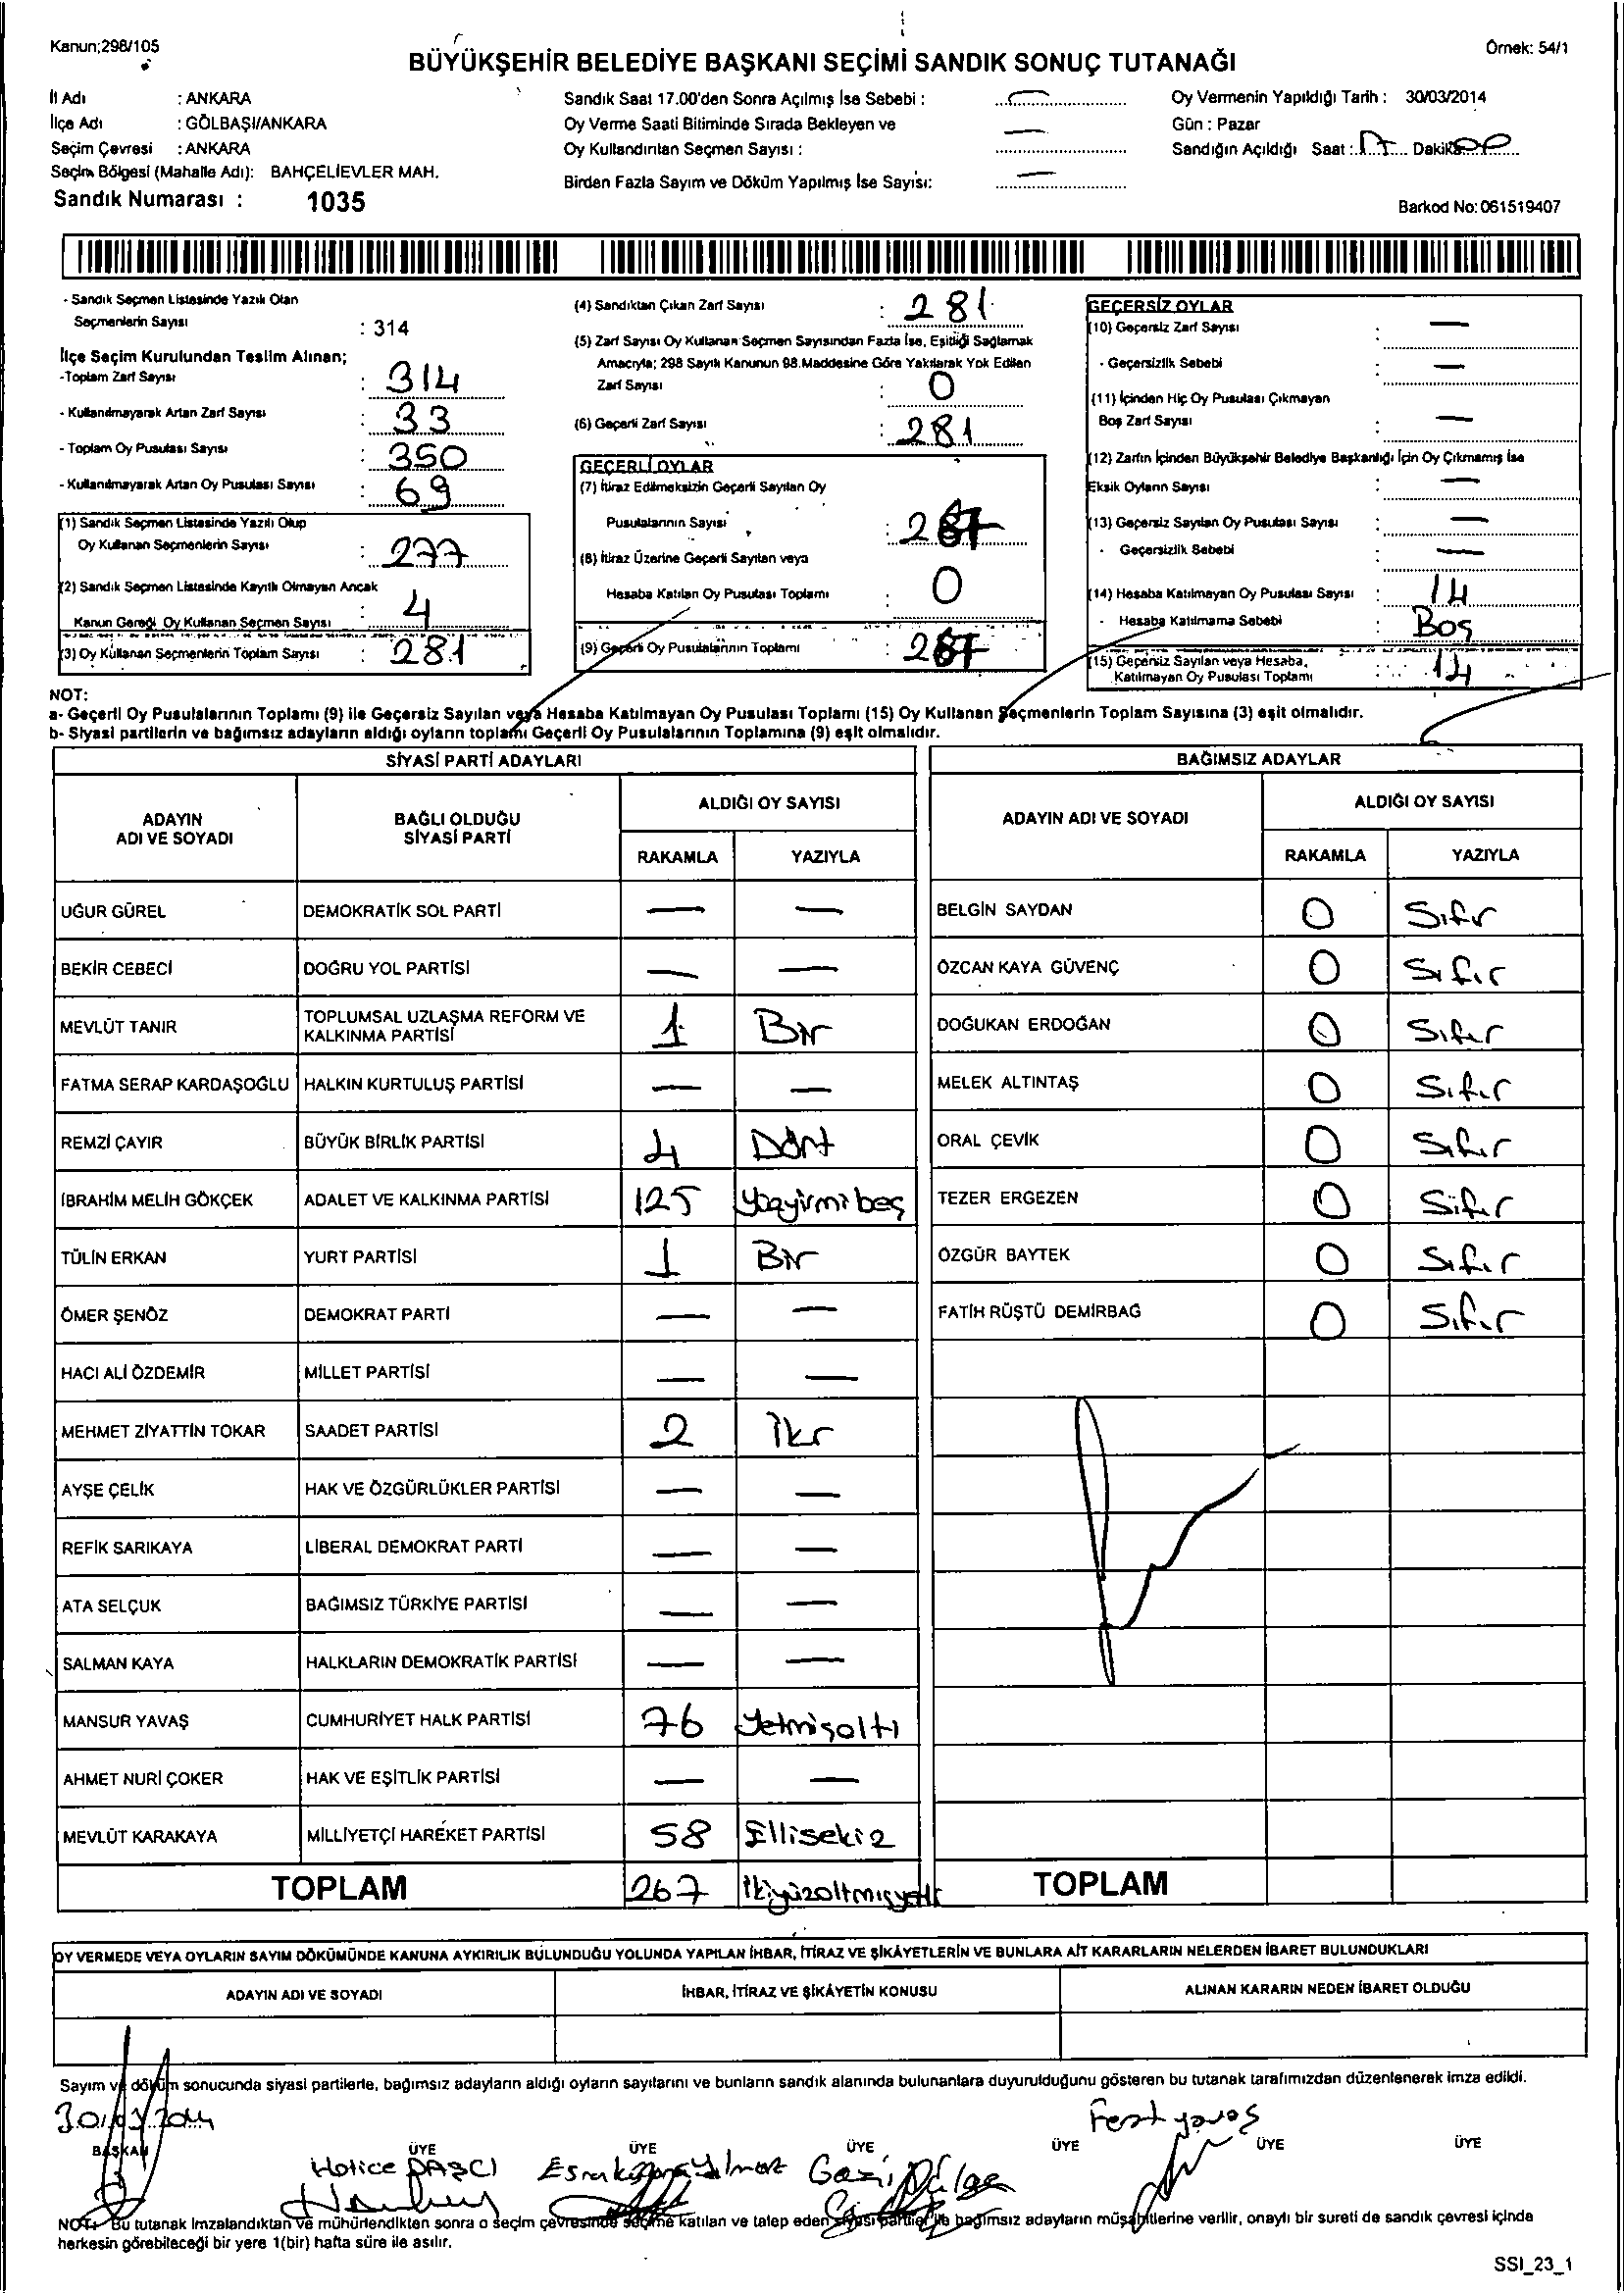 Kanun;298/105
Örnek: 54/1
BÜYÜKŞEHİR BELEDİYE BAŞKANI SEÇİMİ SANDIK SONUÇ TUTANAĞI
İl Adı : ANKARA
İlçe Adı : GÖLBAŞI/ANKARA
Seçim Çevresi : ANKARA
Seçim Bölgesi (Mahalle Adı): BAHÇELİEVLER MAH.
Sandık Numarası : 1035
Sandık Saat 17.00'den Sonra Açılmış İse Sebebi : —
Oy Verme Saati Bitiminde Sırada Bekleyen ve
Oy Kullandırılan Seçmen Sayısı : —
Birden Fazla Sayım ve Döküm Yapılmış İse Sayısı: —
Oy Vermenin Yapıldığı Tarih : 30/03/2014
Gün : Pazar
Sandığın Açıldığı Saat : 17 Dakika 00
Barkod No:061519407
- Sandık Seçmen Listesinde Yazılı Olan
Seçmenlerin Sayısı : 314
İlçe Seçim Kurulundan Teslim Alınan;
-Toplam Zarf Sayısı : 314
- Kullanılmayarak Artan Zarf Sayısı : 33
- Toplam Oy Pusulası Sayısı : 350
- Kullanılmayarak Artan Oy Pusulası Sayısı : 69
(1) Sandık Seçmen Listesinde Yazılı Olup
Oy Kullanan Seçmenlerin Sayısı : 277
(2) Sandık Seçmen Listesinde Kayıtlı Olmayan Ancak
Kanun Gereği Oy Kullanan Seçmen Sayısı : 4
(3) Oy Kullanan Seçmenlerin Toplam Sayısı : 281
(4) Sandıktan Çıkan Zarf Sayısı : 281
(5) Zarf Sayısı Oy Kullanan Seçmen Sayısından Fazla İse, Eşitliği Sağlamak
Amacıyla; 298 Sayılı Kanunun 98.Maddesine Göre Yakılarak Yok Edilen
Zarf Sayısı : 0
(6) Geçerli Zarf Sayısı : 281
GEÇERLİ OYLAR
(7) İtiraz Edilmeksizin Geçerli Sayılan Oy
Pusulalarının Sayısı : 267
(8) İtiraz Üzerine Geçerli Sayılan veya
Hesaba Katılan Oy Pusulası Toplamı : 0
(9) Geçerli Oy Pusulalarının Toplamı : 267
GEÇERSİZ OYLAR
(10) Geçersiz Zarf Sayısı : —
- Geçersizlik Sebebi : —
(11) İçinden Hiç Oy Pusulası Çıkmayan
Boş Zarf Sayısı : —
(12) Zarfın İçinden Büyükşehir Belediye Başkanlığı İçin Oy Çıkmamış İse
Eksik Oyların Sayısı : —
(13) Geçersiz Sayılan Oy Pusulası Sayısı : —
- Geçersizlik Sebebi : —
(14) Hesaba Katılmayan Oy Pusulası Sayısı : 14
- Hesaba Katılmama Sebebi : Boş
(15) Geçersiz Sayılan veya Hesaba,
Katılmayan Oy Pusulası Toplamı : 14
NOT:
a- Geçerli Oy Pusulalarının Toplamı (9) ile Geçersiz Sayılan veya Hesaba Katılmayan Oy Pusulası Toplamı (15) Oy Kullanan Seçmenlerin Toplam Sayısına (3) eşit olmalıdır.
b- Siyasi partilerin ve bağımsız adayların aldığı oyların toplamı Geçerli Oy Pusulalarının Toplamına (9) eşit olmalıdır.
SİYASİ PARTİ ADAYLARI
ADAYIN ADI VE SOYADI
BAĞLI OLDUĞU SİYASİ PARTİ
ALDIĞI OY SAYISI
RAKAMLA YAZIYLA
UĞUR GÜREL DEMOKRATİK SOL PARTİ — —
BEKİR CEBECİ DOĞRU YOL PARTİSİ — —
MEVLÜT TANIR TOPLUMSAL UZLAŞMA REFORM VE KALKINMA PARTİSİ 1 Bir
FATMA SERAP KARDAŞOĞLU HALKIN KURTULUŞ PARTİSİ — —
REMZİ ÇAYIR BÜYÜK BİRLİK PARTİSİ 4 Dört
İBRAHİM MELİH GÖKÇEK ADALET VE KALKINMA PARTİSİ 125 yüzyirmibeş
TÜLİN ERKAN YURT PARTİSİ 1 Bir
ÖMER ŞENÖZ DEMOKRAT PARTİ — —
HACI ALİ ÖZDEMİR MİLLET PARTİSİ — —
MEHMET ZİYATTİN TOKAR SAADET PARTİSİ 2 İki
AYŞE ÇELİK HAK VE ÖZGÜRLÜKLER PARTİSİ — —
REFİK SARIKAYA LİBERAL DEMOKRAT PARTİ — —
ATA SELÇUK BAĞIMSIZ TÜRKİYE PARTİSİ — —
SALMAN KAYA HALKLARIN DEMOKRATİK PARTİSİ — —
MANSUR YAVAŞ CUMHURİYET HALK PARTİSİ 76 Yetmişaltı
AHMET NURİ ÇOKER HAK VE EŞİTLİK PARTİSİ — —
MEVLÜT KARAKAYA MİLLİYETÇİ HAREKET PARTİSİ 58 Ellisekiz
TOPLAM 267 İkiyüzaltmışyedi
BAĞIMSIZ ADAYLAR
ADAYIN ADI VE SOYADI
ALDIĞI OY SAYISI
RAKAMLA YAZIYLA
BELGİN SAYDAN 0 Sıfır
ÖZCAN KAYA GÜVENÇ 0 Sıfır
DOĞUKAN ERDOĞAN 0 Sıfır
MELEK ALTINTAŞ 0 Sıfır
ORAL ÇEVİK 0 Sıfır
TEZER ERGEZEN 0 Sıfır
ÖZGÜR BAYTEK 0 Sıfır
FATİH RÜŞTÜ DEMİRBAĞ 0 Sıfır
TOPLAM
OY VERMEDE VEYA OYLARIN SAYIM DÖKÜMÜNDE KANUNA AYKIRILIK BULUNDUĞU YOLUNDA YAPILAN İHBAR, İTİRAZ VE ŞİKAYETLERİN VE BUNLARA AİT KARARLARIN NELERDEN İBARET BULUNDUKLARI
ADAYIN ADI VE SOYADI
İHBAR, İTİRAZ VE ŞİKAYETİN KONUSU
ALINAN KARARIN NEDEN İBARET OLDUĞU
Sayım ve döküm sonucunda siyasi partilerle, bağımsız adayların aldığı oyların sayılarını ve bunların sandık alanında bulunanlara duyurulduğunu gösteren bu tutanak tarafımızdan düzenlenerek imza edildi.
30/03/2014
BAŞKAN ÜYE ÜYE ÜYE ÜYE ÜYE ÜYE
Hatice DAŞCI
Yılmaz
Gazi
yavaş
NOT: Bu tutanak imzalandıktan ve mühürlendikten sonra o seçim çevresinde seçime katılan ve talep eden siyasi partiler ile bağımsız adayların müşahitlerine verilir, onaylı bir sureti de sandık çevresi içinde
herkesin görebileceği bir yere 1(bir) hafta süre ile asılır.
SSI_23_1